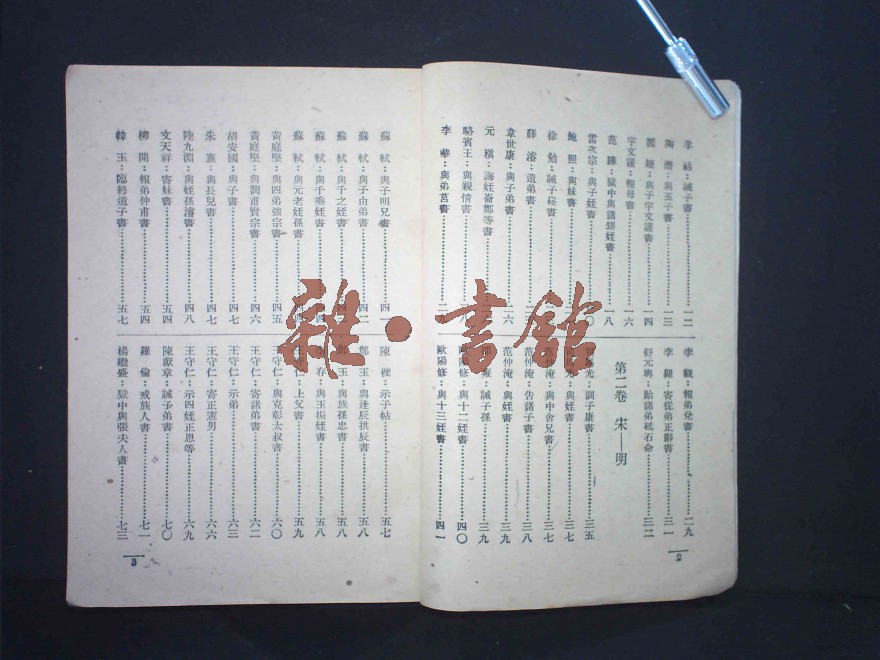 羊祜：誡子書……一二
陶潛：與五子書……一三
閻姬：與子宇文護書……一四
宇文護：報母書……一六
范曄：獄中與諸甥姪書……一八
雷次宗：與子姪書
鮑照：與妹書
徐勉：誡子崧書
薛濬：遺弟書
韋世康：與子弟書……二六
元稹：誨姪崙鄭等書
駱賓王：與親情書
李華：與弟莒書……二九
李觀：報弟兌書……二九
李翺：寄從弟正辭書……三一
舒元輿：貽諸弟砥石命……三二
第二卷 宋——明
光：訓子康書……三五
與姪書……三七
范仲淹：與中舍兄書……三七
范仲淹：告諸子書……三八
范仲淹：與姪書……三九
雍：誡子孫……三九
歐陽修：與十二姪書……四〇
歐陽修：與十三姪書……四一
2
蘇軾：與子明兄書……四一
蘇軾：與子由弟書……四二
蘇軾：與千之姪書
蘇軾：與千乘姪書
蘇軾：與元老姪孫書
黃庭堅：與四弟強宗書……四五
黃庭堅：與潤甫賢宗書……四六
胡安國：與子書……四七
朱熹：與長兒書……四七
陸九淵：與姪孫濬書……四八
文天祥：寄妹書……五四
柳開：報弟仲甫書……五四
韓玉：臨終遺子書……五七
陳櫟：示子帖……五七
鄭玉：與逢辰拱辰書……五八
鄭玉：與族孫忠書……五八
存：與玉塤姪書……五八
王守仁：上父書……五九
王守仁：與克彰太叔書……六〇
王守仁：寄諸弟書……六二
王守仁：示弟……六三
王守仁：寄正憲男……六六
王守仁：示四姪正思等……六九
陳獻章：誡子弟書……七〇
羅倫：戒族人書……七一
楊繼盛：獄中與張夫人書……七三
3
雜·書館